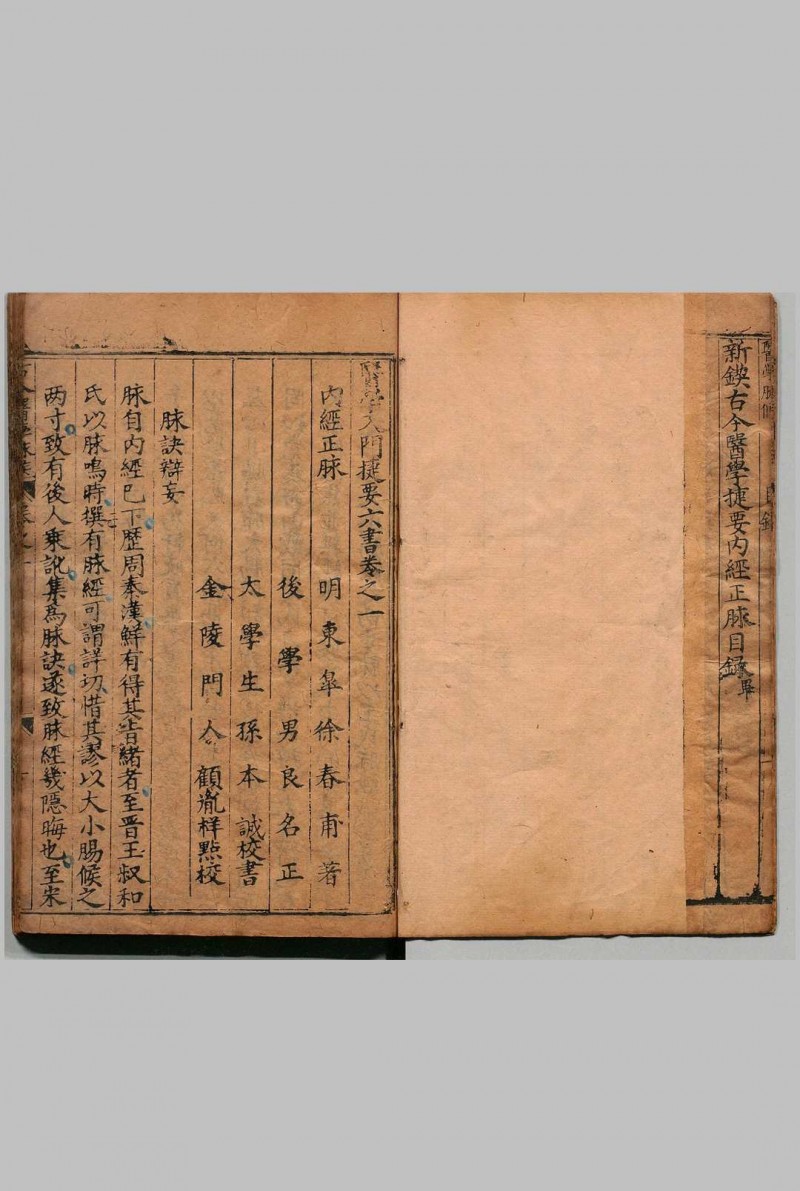 新鍥古今醫學捷要內經正脉目録畢
醫學入門捷要六書卷之一
內經正脉
明東皐徐春甫著
後學男良名正
太學生孫本誠校書
金陵門人顧胤祥㸃校
脉訣辯妄
脉自內經已下歷周秦漢鮮有得其㫖緒者至晋王叔和
氏以脉鳴時撰有脉經可謂詳切惜其謬以大小腸候之
两寸致有後人乘訛集為脉訣遂致脉經幾隠晦也至宋